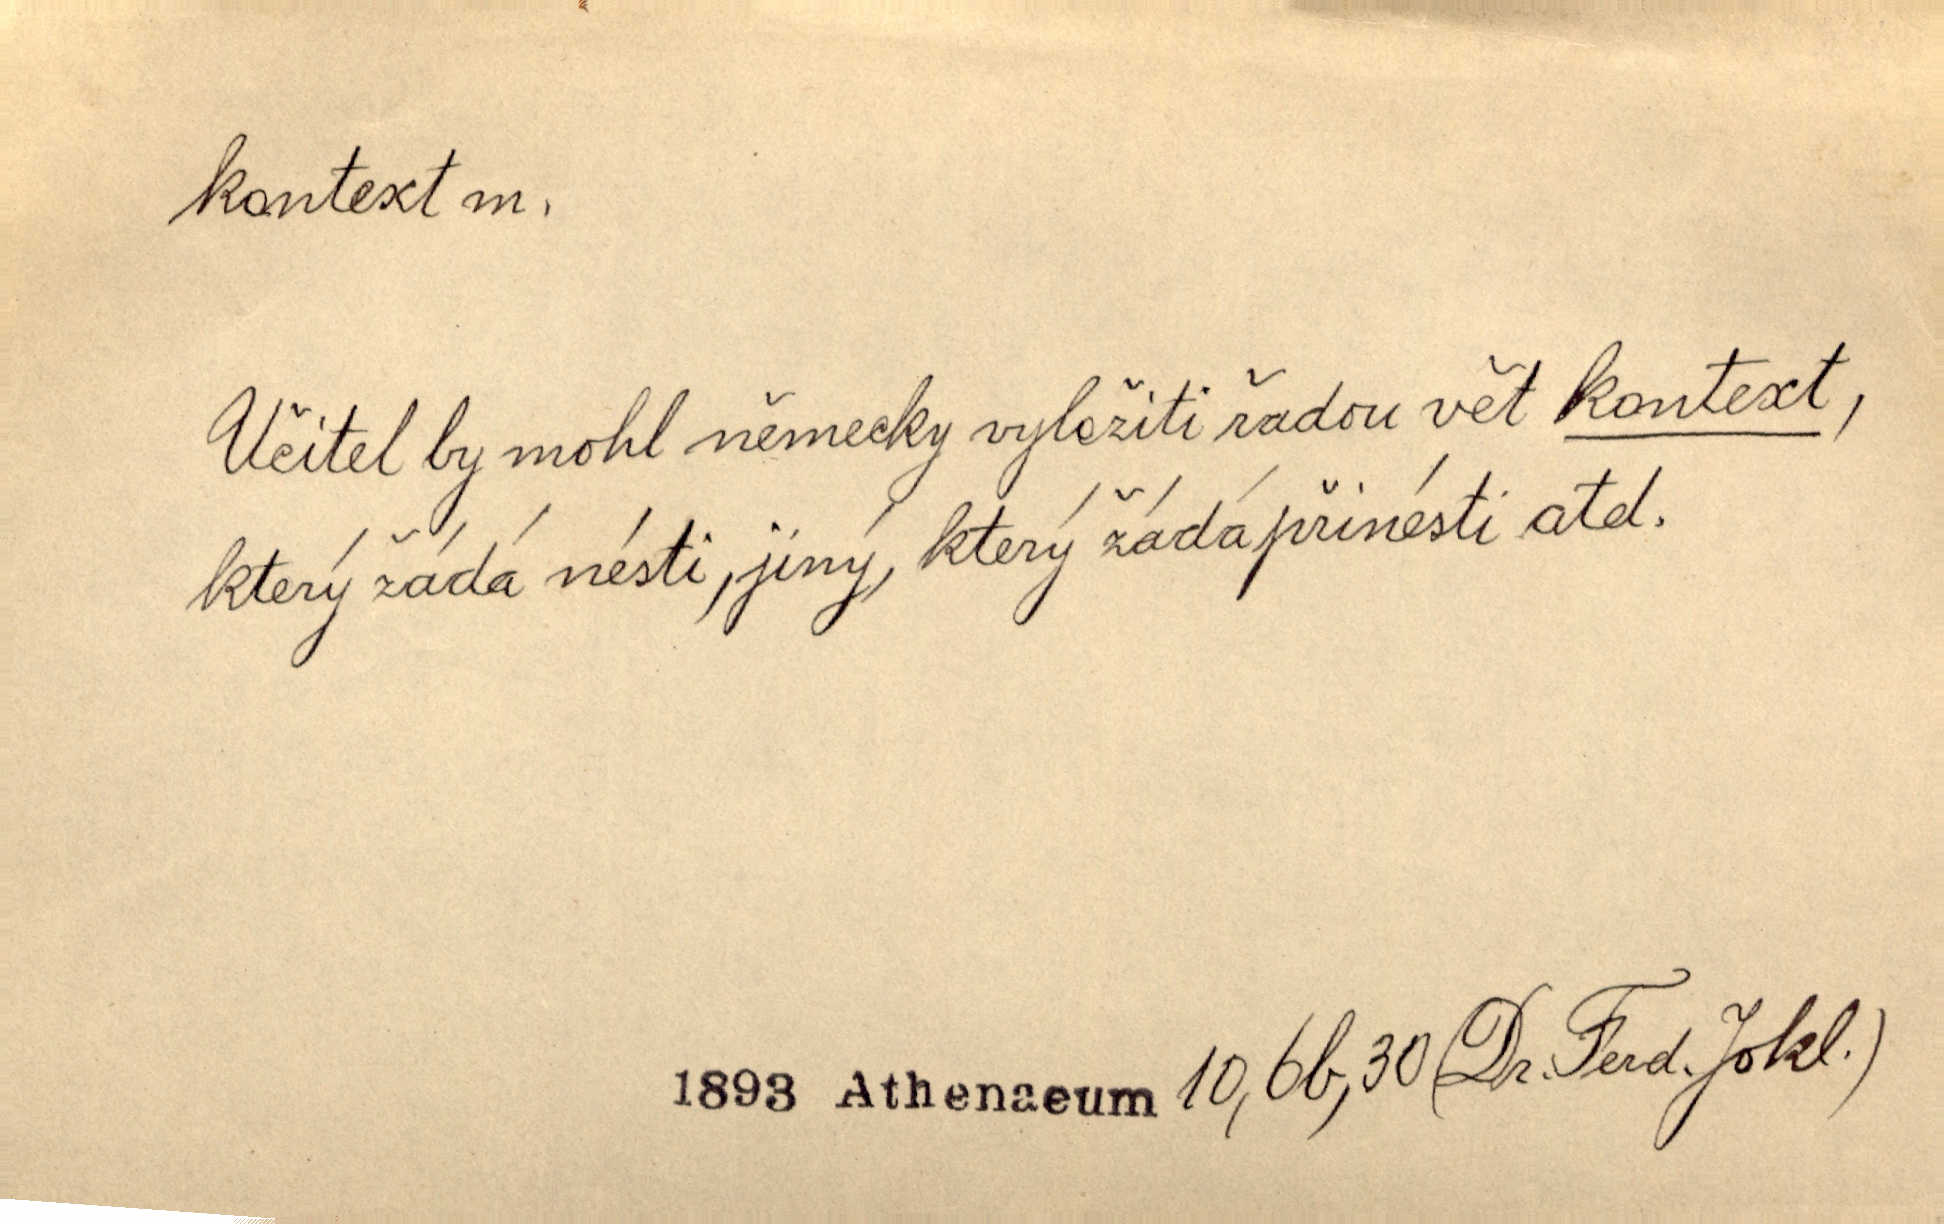 kontext m.
Učitel by mohl německy vyložiti řadou vět kontext,
který žádá nésti, jiný, který žádá přinésti atd.
1893 Athenaeum 10,6b,30 (Dr. Ferd. Jokl.)